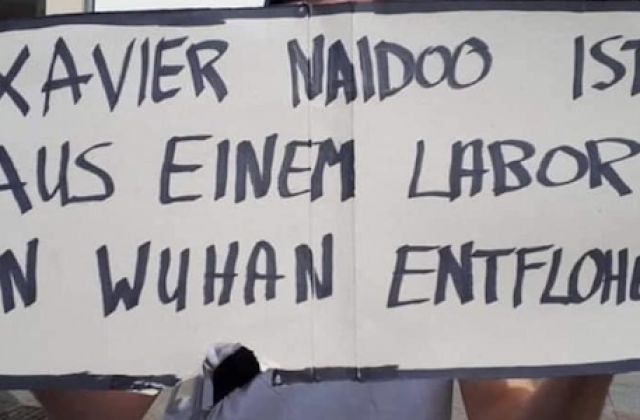 XAVIER NAIDOO IST
AUS EINEM LABOR
IN WUHAN ENTFLOHE